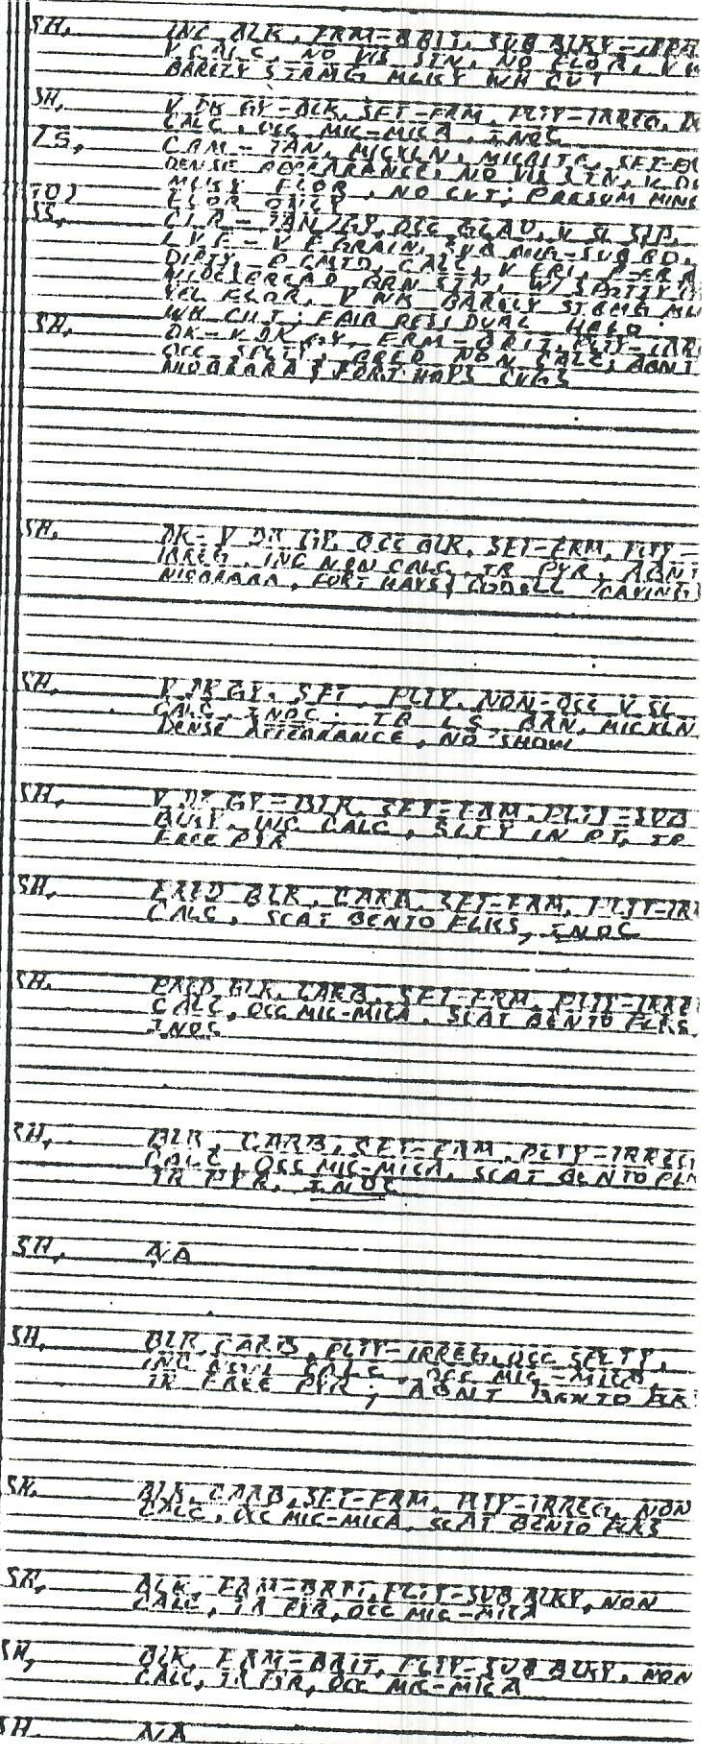 SH. INC BLK, FRM-BRIT, SUB BLKY-IRREG
V CALC, NO VIS STN, NO FLOR, V
BARELY STRMG MLKY WH CUT
SH. V DK GY-BLK, SFT-FRM, PLTY-IRREG,
CALC, OCC MIC-MICA, INOC
LS. CRM-TAN, MICXLN, MICRITC, SFT-
DENSE APPEARANCE, NO VIS STN, V DU
MLKY FLOR, NO CUT; PRESUM MINE
FLOR ONLY
SS. CLR-TAN/GY, OCC GLAU, V SL SLT,
LVF-V F GRAIN, SUB ANG-SUB RD,
DIRTY, P CMTD, CALC, V FRI, P-
WIDESPREAD BRN STN, W/ SPOTTY
YEL FLOR, V WK BARELY STRMG ML
WH CUT; FAIR RESIDUAL HALO
SH. DK-V DK GY, FRM-BRIT, PLTY-IRR
OCC SPLTY, PRED NON CALC; ABNT
NIOBRARA & FORT HAYS CVGS
SH. DK-V DK GY, OCC BLK, SFT-FRM, PLTY-
IRREG, INC NON CALC, TR PYR, ABNT
NIOBRARA, FORT HAYS, CODELL (CAVING)
SH. V DK GY, SFT, PLTY, NON-OCC V SL
CALC, INOC; TR LS, BRN, MICXLN
DENSE APPEARANCE, NO SHOW
SH. V DK GY-BLK, SFT-FRM, PLTY-SUB
BLKY, INC CALC, SLTY IN PT, TR
FREE PYR
SH. PRED BLK, CARB, SFT-FRM, PLTY-IRR
CALC, SCAT BENTO FLKS, INOC
SH. PRED BLK, CARB, SFT-FRM, PLTY-IRRE
CALC, OCC MIC-MICA, SCAT BENTO FLKS
INOC
SH. BLK, CARB, SFT-FRM, PLTY-IRREG
CALC, OCC MIC-MICA, SCAT BENTO FLK
TR PYR, INOC
SH. N/A
SH. BLK, CARB, PLTY-IRREG, OCC SPLTY,
INC NON CALC, OCC MIC-MICA,
TR FREE PYR; ABNT BENTO FLK
SH. BLK, CARB, SFT-FRM, PLTY-IRREG, NON
CALC, OCC MIC-MICA, SCAT BENTO FLKS
SH. BLK, FRM-BRIT, PLTY-SUB BLKY, NON
CALC, TR PYR, OCC MIC-MICA
SH, BLK, FRM-BRIT, PLTY-SUB BLKY, NON
CALC, TR PYR, OCC MIC-MICA
SH N/A